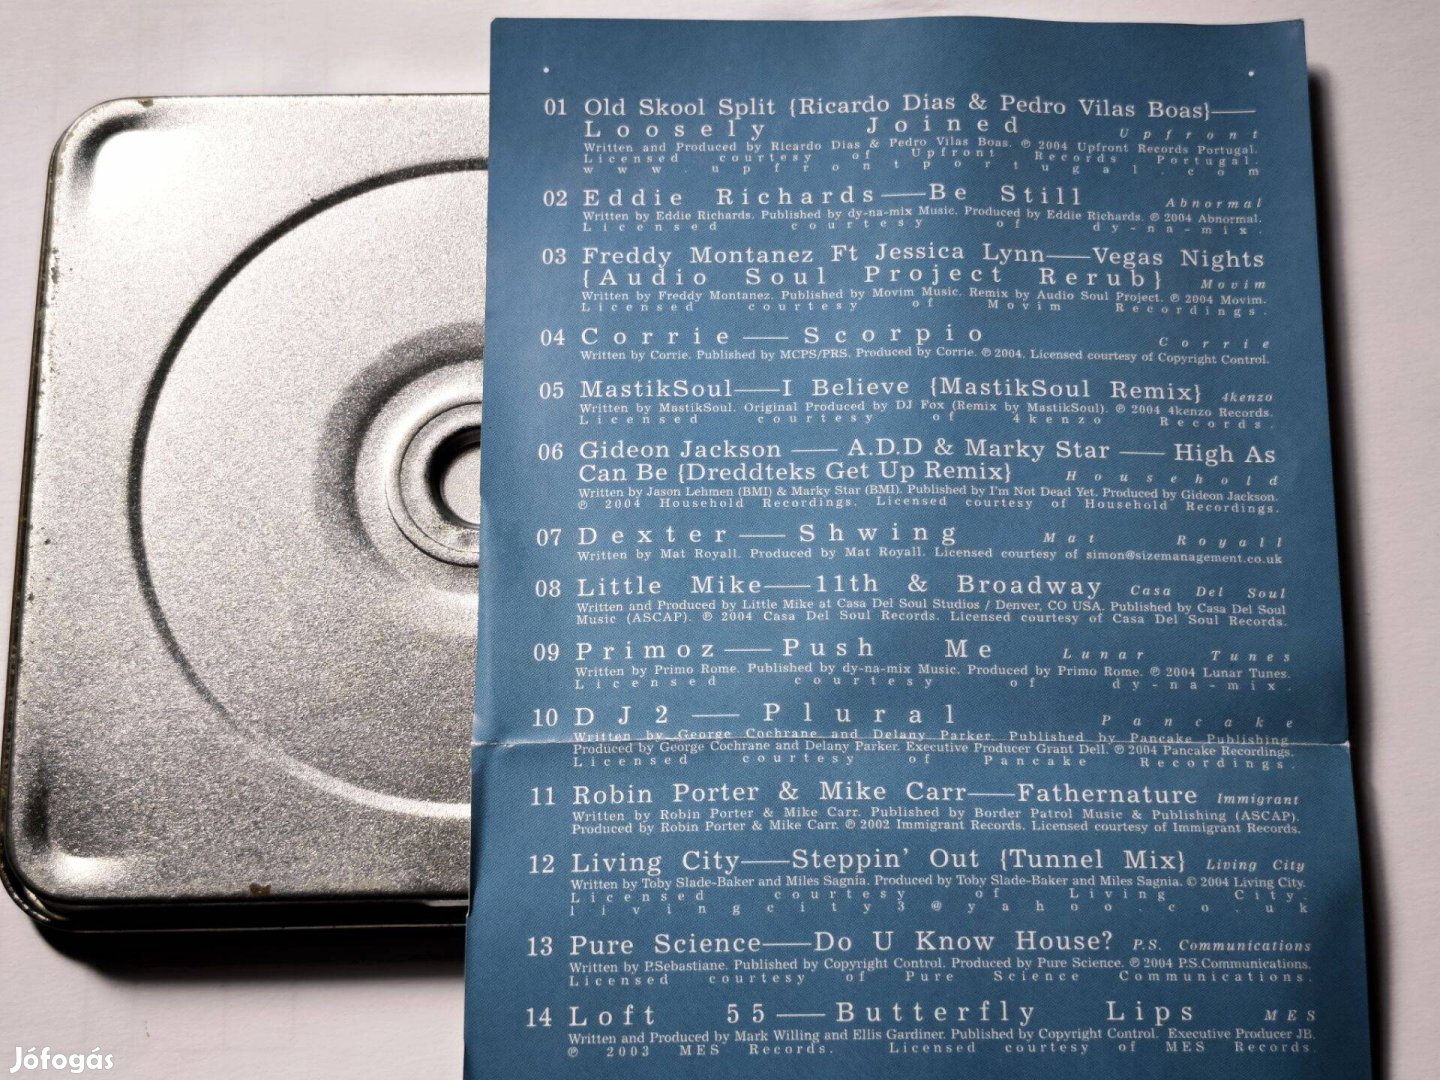 01 Old Skool Split {Ricardo Dias & Pedro Vilas Boas}—
Loosely Joined Upfront
Written and Produced by Ricardo Dias & Pedro Vilas Boas. ℗ 2004 Upfront Records Portugal.
Licensed courtesy of Upfront Records Portugal.
www.upfrontportugal.com
02 Eddie Richards—Be Still Abnormal
Written by Eddie Richards. Published by dy-na-mix Music. Produced by Eddie Richards. ℗ 2004 Abnormal.
Licensed courtesy of dy-na-mix.
03 Freddy Montanez Ft Jessica Lynn—Vegas Nights
{Audio Soul Project Rerub} Movim
Written by Freddy Montanez. Published by Movim Music. Remix by Audio Soul Project. ℗ 2004 Movim.
Licensed courtesy of Movim Recordings.
04 Corrie—Scorpio Corrie
Written by Corrie. Published by MCPS/PRS. Produced by Corrie. ℗ 2004. Licensed courtesy of Copyright Control.
05 MastikSoul—I Believe {MastikSoul Remix} 4kenzo
Written by MastikSoul. Original Produced by DJ Fox (Remix by MastikSoul). ℗ 2004 4kenzo Records.
Licensed courtesy of 4kenzo Records.
06 Gideon Jackson — A.D.D & Marky Star — High As
Can Be {Dreddteks Get Up Remix} Household
Written by Jason Lehmen (BMI) & Marky Star (BMI). Published by I'm Not Dead Yet. Produced by Gideon Jackson.
℗ 2004 Household Recordings. Licensed courtesy of Household Recordings.
07 Dexter—Shwing Mat Royall
Written by Mat Royall. Produced by Mat Royall. Licensed courtesy of simon@sizemanagement.co.uk
08 Little Mike—11th & Broadway Casa Del Soul
Written and Produced by Little Mike at Casa Del Soul Studios / Denver, CO USA. Published by Casa Del Soul
Music (ASCAP). ℗ 2004 Casa Del Soul Records. Licensed courtesy of Casa Del Soul Records.
09 Primoz—Push Me Lunar Tunes
Written by Primo Rome. Published by dy-na-mix Music. Produced by Primo Rome. ℗ 2004 Lunar Tunes.
Licensed courtesy of dy-na-mix.
10 DJ2 — Plural Pancake
Written by George Cochrane and Delany Parker. Published by Pancake Publishing
Produced by George Cochrane and Delany Parker. Executive Producer Grant Dell. ℗ 2004 Pancake Recordings.
Licensed courtesy of Pancake Recordings.
11 Robin Porter & Mike Carr—Fathernature Immigrant
Written by Robin Porter & Mike Carr. Published by Border Patrol Music & Publishing (ASCAP).
Produced by Robin Porter & Mike Carr. ℗ 2002 Immigrant Records. Licensed courtesy of Immigrant Records.
12 Living City—Steppin' Out {Tunnel Mix} Living City
Written by Toby Slade-Baker and Miles Sagnia. Produced by Toby Slade-Baker and Miles Sagnia. © 2004 Living City.
Licensed courtesy of Living City.
livingcity3@yahoo.co.uk
13 Pure Science—Do U Know House? P.S. Communications
Written by P.Sebastiane. Published by Copyright Control. Produced by Pure Science. ℗ 2004 P.S.Communications.
Licensed courtesy of Pure Science Communications.
14 Loft 55—Butterfly Lips MES
Written and Produced by Mark Willing and Ellis Gardiner. Published by Copyright Control. Executive Producer JB.
℗ 2003 MES Records. Licensed courtesy of MES Records.
Jófogás